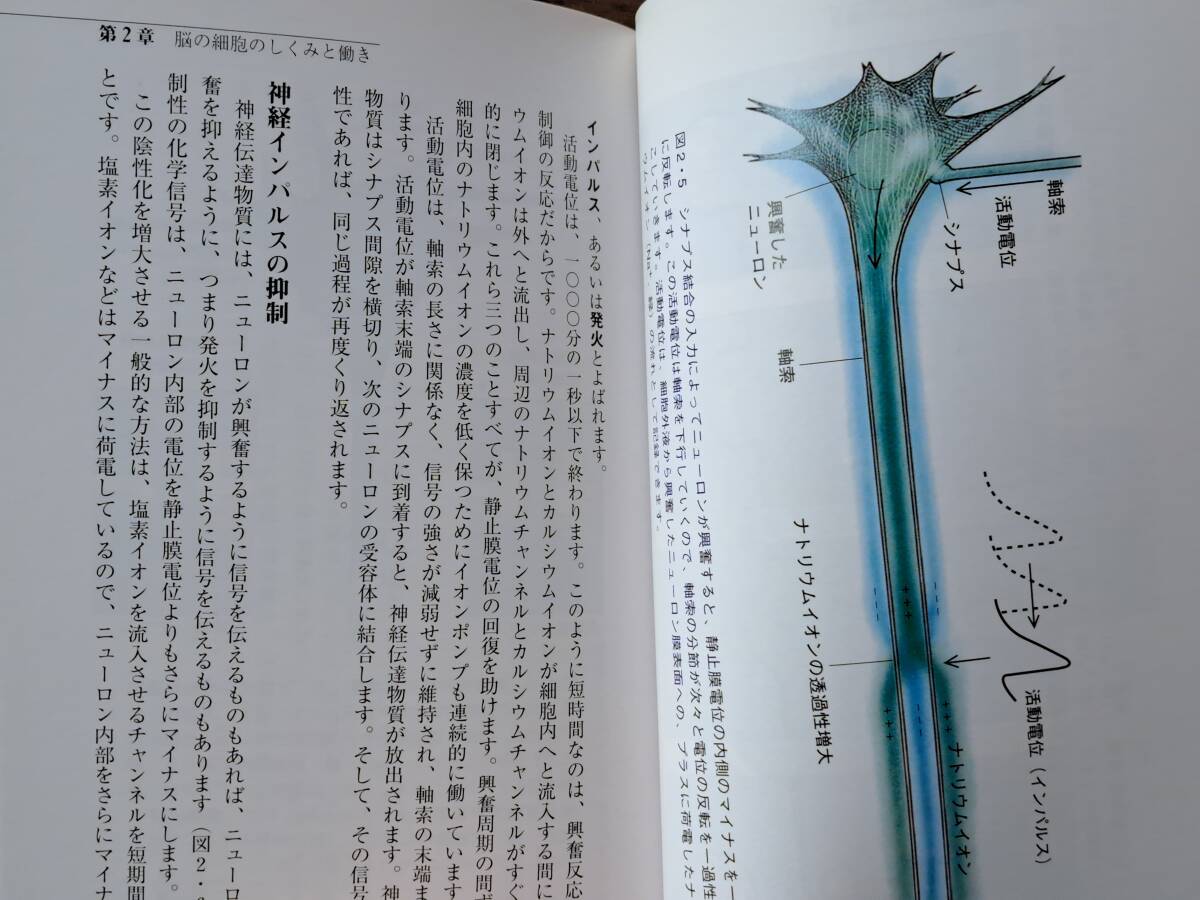 第2章 脳の細胞のしくみと働き
インパルス、あるいは発火とよばれます。
活動電位は、一〇〇〇分の一秒以下で終わります。このように短時間なのは、興奮反応
制御の反応だからです。ナトリウムイオンとカルシウムイオンが細胞内へと流入する間に
ウムイオンは外へと流出し、周辺のナトリウムチャンネルとカルシウムチャンネルがすぐ
的に閉じます。これら三つのことすべてが、静止膜電位の回復を助けます。興奮周期の間ず
細胞内のナトリウムイオンの濃度を低く保つためにイオンポンプも連続的に働いています
活動電位は、軸索の長さに関係なく、信号の強さが減弱せずに維持され、軸索の末端ま
ります。活動電位が軸索末端のシナプスに到着すると、神経伝達物質が放出されます。神
物質はシナプス間隙を横切り、次のニューロンの受容体に結合します。そして、その信号
性であれば、同じ過程が再度くり返されます。
神経インパルスの抑制
神経伝達物質には、ニューロンが興奮するように信号を伝えるものもあれば、ニューロ
奮を抑えるように、つまり発火を抑制するように信号を伝えるものもあります(図2・
制性の化学信号は、ニューロン内部の電位を静止膜電位よりもさらにマイナスにします。
この陰性化を増大させる一般的な方法は、塩素イオンを流入させるチャンネルを短期間
とです。塩素イオンなどはマイナスに荷電しているので、ニューロン内部をさらにマイナ
軸索
活動電位
シナプス
興奮した
ニューロン
軸索
ナトリウムイオンの透過性増大
活動電位(インパルス)
ナトリウムイオン
+++
---
---
+++
---
+++
図2・5 シナプス結合の入力によってニューロンが興奮すると、静止膜電位の内側のマイナスを一
に反転します。この活動電位は軸索を下行していくので、軸索の分節が次々と電位の反転を一過性
こしていきます。活動電位は、細胞外液から興奮したニューロン膜表面への、プラスに荷電したナ